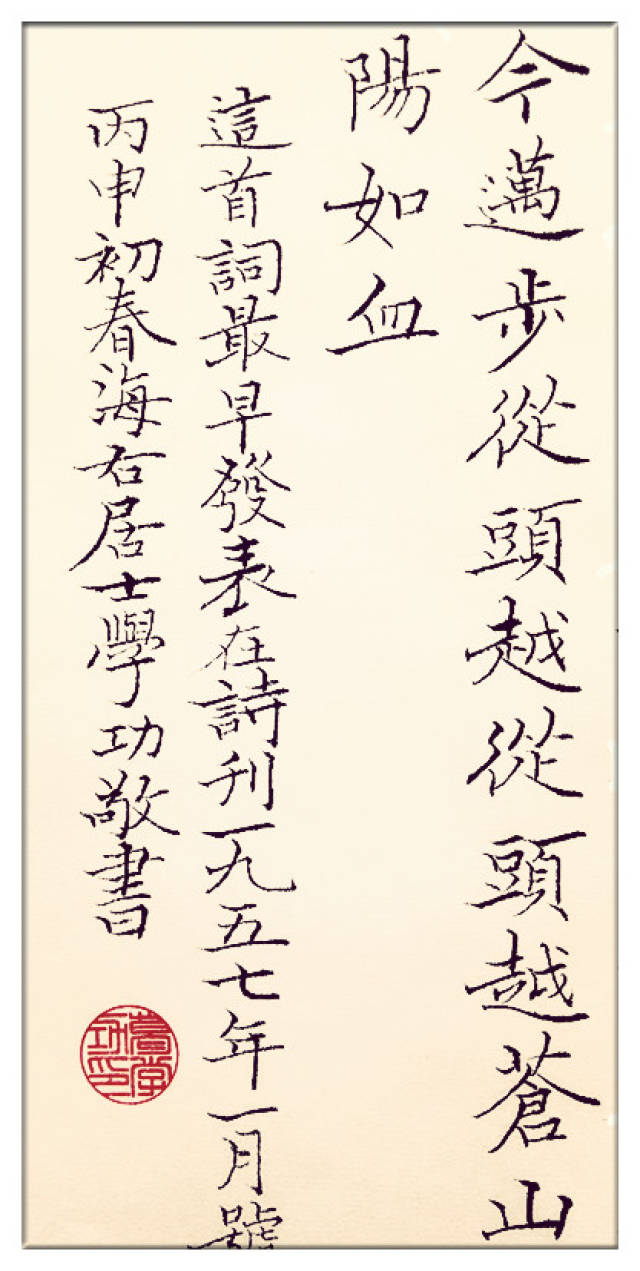 今邁步從頭越從頭越蒼山
陽如血
這首詞最早發表在詩刊一九五七年一月號
丙申初春海右居士學功敬書
學功印